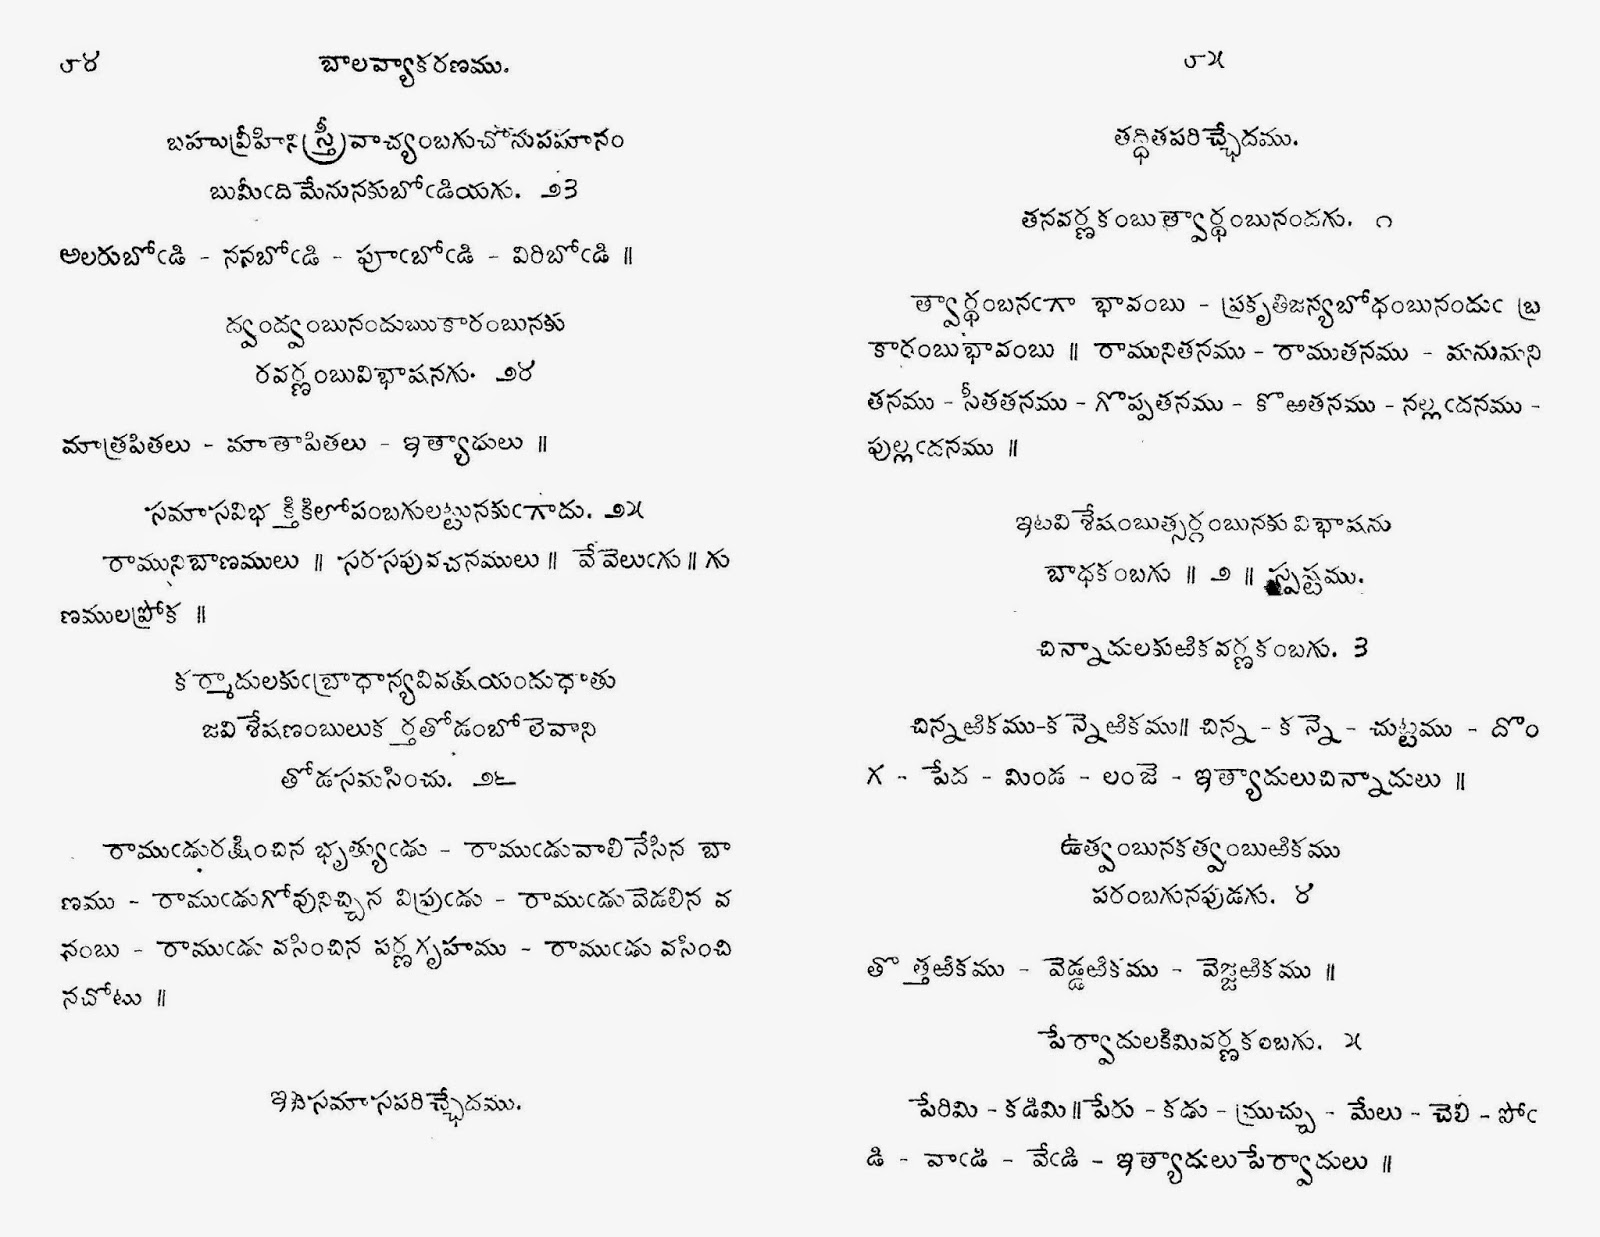 ౬౪
బాలవ్యాకరణము.
బహువ్రీహిని స్త్రీవాచ్యంబగుచోనుపమానం
బుమీఁదిమేనునకుబోఁడియగు. ౨౩
అలరుబోఁడి - ననబోఁడి - పూఁబోఁడి - విరిబోఁడి ॥
ద్వంద్వంబునందుఋకారంబునకు
రవర్ణంబువిభాషనగు. ౨౪
మాత్రపితలు - మాతాపితలు - ఇత్యాదులు ॥
సమాసవిభక్తికిలోపంబగులట్టునకుఁగాదు. ౨౫
రామునిబాణములు ॥ సరసపువచనములు ॥ వేవెలుఁగు ॥ గు
ణములప్రోక ॥
కర్మాదులకుఁబ్రాధాన్యవివక్షయందుధాతు
జవిశేషణంబులుకర్తతోడంబోలెవాని
తోడసమసించు. ౨౬
రాముఁడురక్షించిన భృత్యుఁడు - రాముఁడువాలినేసిన బా
ణము - రాముఁడుగోవునిచ్చిన విప్రుఁడు - రాముఁడు వెడలిన వ
నంబు - రాముఁడు వసించిన పర్ణగృహము - రాముఁడు వసించి
నచోటు ॥
ఇతిసమాసపరిచ్ఛేదము.
౬౫
తద్ధితపరిచ్ఛేదము.
తనవర్ణకంబు త్వార్థంబునందగు. ౧
త్వార్థంబనఁగా భావంబు - ప్రకృతిజన్యబోధంబునందుఁ బ్ర
కారంబుభావంబు ॥ రామునితనము - రాముతనము - మనుమని
తనము - సీతతనము - గొప్పతనము - కొఱతనము - నల్లఁదనము -
పుల్లఁదనము ॥
ఇటవిశేషంబుత్సర్గంబునకు విభాషను
బాధకంబగు ॥ ౨ ॥ స్పష్టము.
చిన్నాదులకుఱికవర్ణకంబగు. ౩
చిన్నఱికము-కన్నెఱికము॥ చిన్న - కన్నె - చుట్టము - దొం
గ - పేద - మిండ - లంజె - ఇత్యాదులుచిన్నాదులు ॥
ఉత్వంబునకత్వంబుఱికము
పరంబగునపుడగు. ౪
తొత్తఱికము - వెడ్డఱికము - వెజ్జఱికము ॥
పేర్వాదులకిమివర్ణకంబగు. ౫
పేరిమి - కడిమి॥ పేరు - కడు - మ్రుచ్చు - మేలు - చెలి - సోఁ
డి - వాఁడి - వేఁడి - ఇత్యాదులు పేర్వాదులు ॥